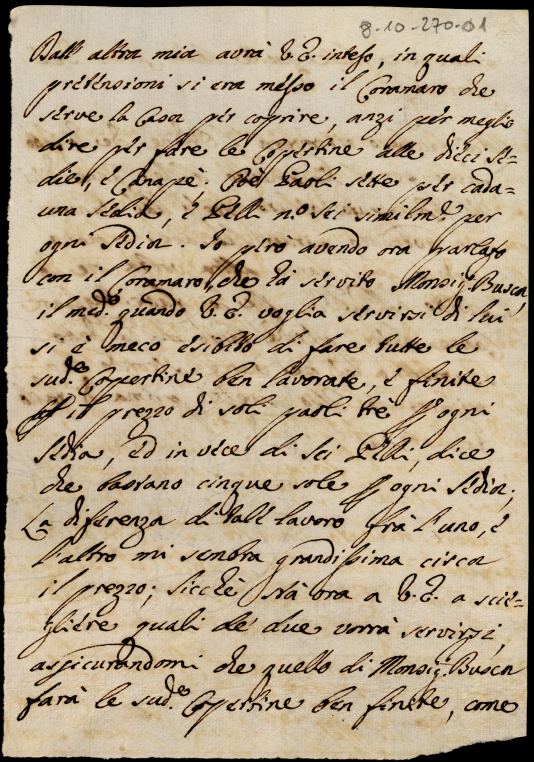 8-10-270-01
Dall' altra mia avrà V. E. inteso, in quali
pretensioni si era messo il Coramaro che
serve la Casa per coprire, anzi per meglio
dire per fare le Copertine alle dieci se=
die, è Canapè. Cioè Paoli sette per cada=
una sedia, è Pelli n.o sei similm.e per
ogni sedia. Io però avendo ora parlato
con il Coramaro, che hà servito Monsig.r Busca,
il med.o quando V. E. voglia servirsi di lui
si è meco esibito di fare tutte le
sud.e Copertine ben lavorate, è finite
per il prezzo di soli paoli trè per ogni
sedia, ed in vece di sei Pelli, dice
che bastano cinque sole per ogni sedia;
La diferenza di tall' lavoro frà l'uno, è
l'altro mi sembra grandissima circa
il prezzo; sicchè stà ora a V. E. a scie=
gliere quali de due vorrà servirsi,
assicurandomi che quello di Monsig.r Busca
farà le sud.e Copertine ben finite, come